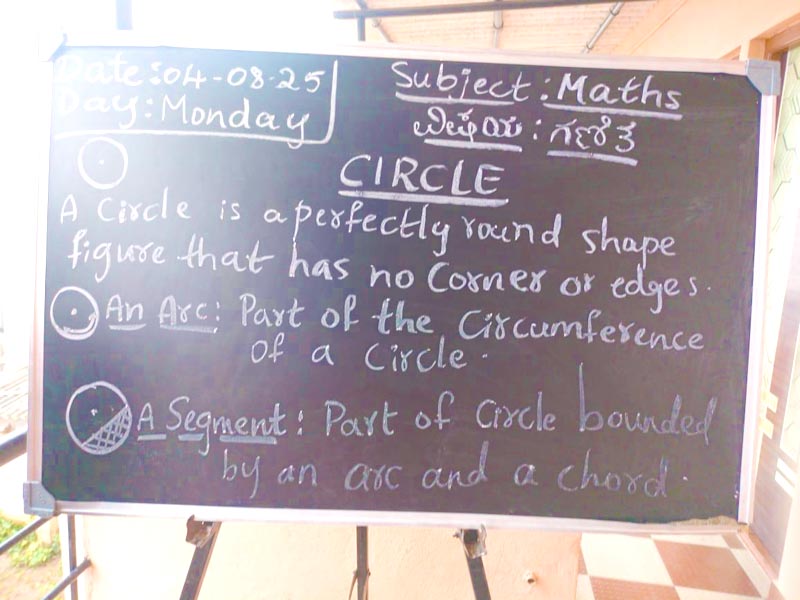 Date: 04-08-25
Day: Monday
Subject: Maths
ವಿಷಯ : ಗಣಿತ
CIRCLE
A Circle is a perfectly round shape
figure that has no Corner or edges.
An Arc: Part of the Circumference
of a Circle.
A Segment: Part of Circle bounded
by an arc and a chord.